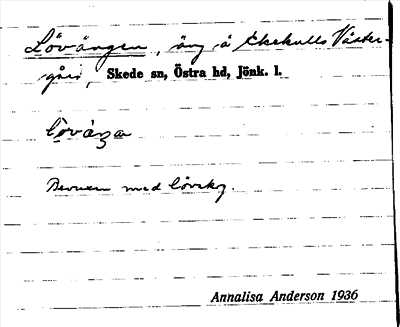 Lövängen, äng å Ekekulls Väster-
gård, Skede sn, Östra hd, Jönk. l.
löväŋa
Bevuxen med lövskog.
Annalisa Anderson 1936